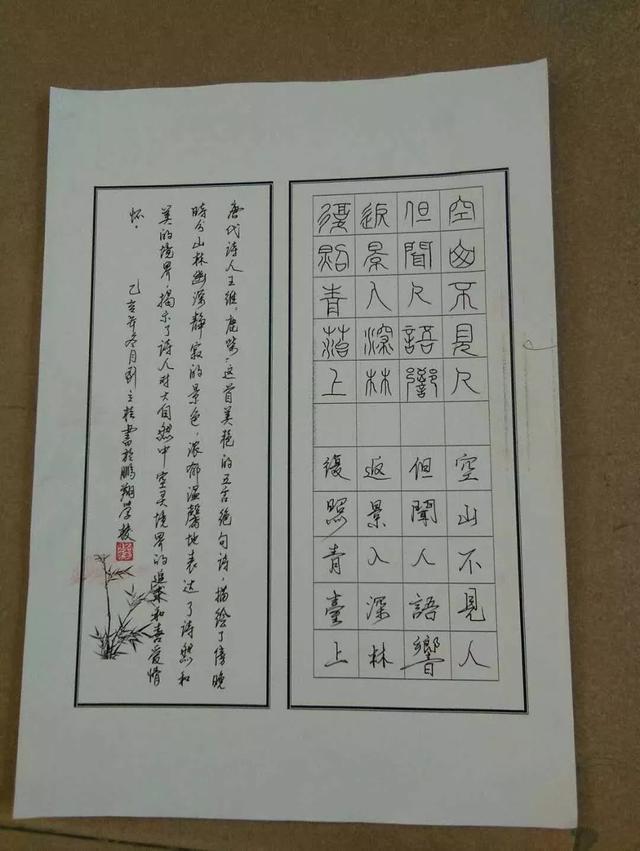 空山不見人
但聞人語響
返景入深林
復照青菭上
空山不見人
但聞人語響
返景入深林
復照青臺上
唐代诗人王维，鹿柴，这首美艳的五言绝句诗，描绘了傍晚
时分山林幽深静寂的景色，浓郁温馨地表达了诗然和
美的境界，揭示了诗人对大自然中空灵境界的追求和喜爱情
怀。
己亥年冬月刘立桂書於鹏翔学校